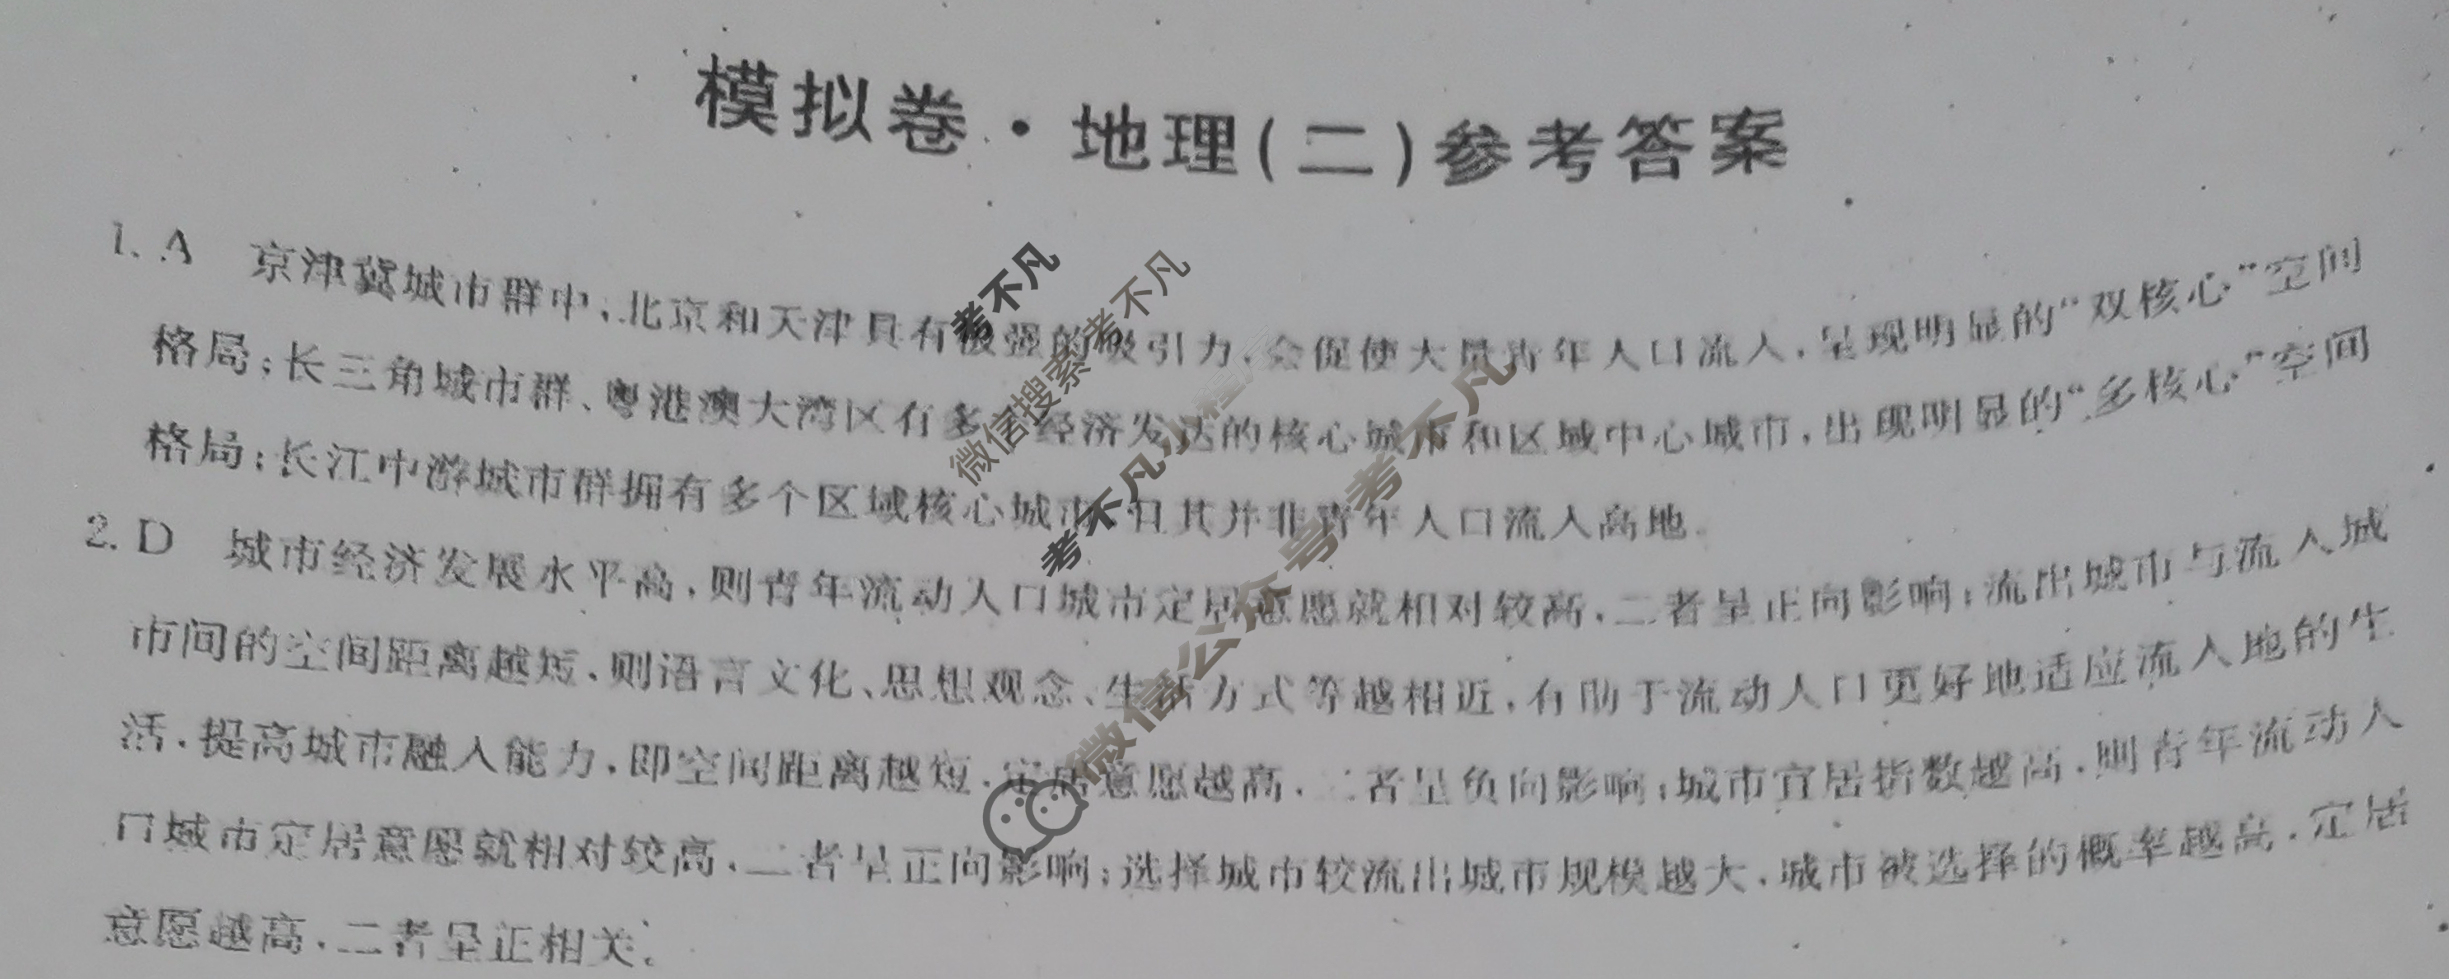 模拟卷·地理(二)参考答案
1. A 京津冀城市群中,北京和天津具有极强的吸引力,会促使大量青年人口流入,呈现明显的“双核心”空间
格局;长三角城市群、粤港澳大湾区有多个经济发达的核心城市和区域中心城市,出现明显的“多核心”空间
格局;长江中游城市群拥有多个区域核心城市,且其并非青年人口流入高地。
2. D 城市经济发展水平高,则青年流动人口城市定居意愿就相对较高,二者呈正向影响;流出城市与流入城
市间的空间距离越短,则语言文化、思想观念、生活方式等越相近,有助于流动人口更好地适应流入地的生
活,提高城市融入能力,即空间距离越短,定居意愿越高,二者呈负向影响;城市宜居指数越高,则青年流动人
口城市定居意愿就相对较高,二者呈正向影响;选择城市较流出城市规模越大,城市被选择的概率越高,定居
意愿越高,二者呈正相关。
考不凡
微信搜索考不凡
考不凡小程序
微信公众号考不凡